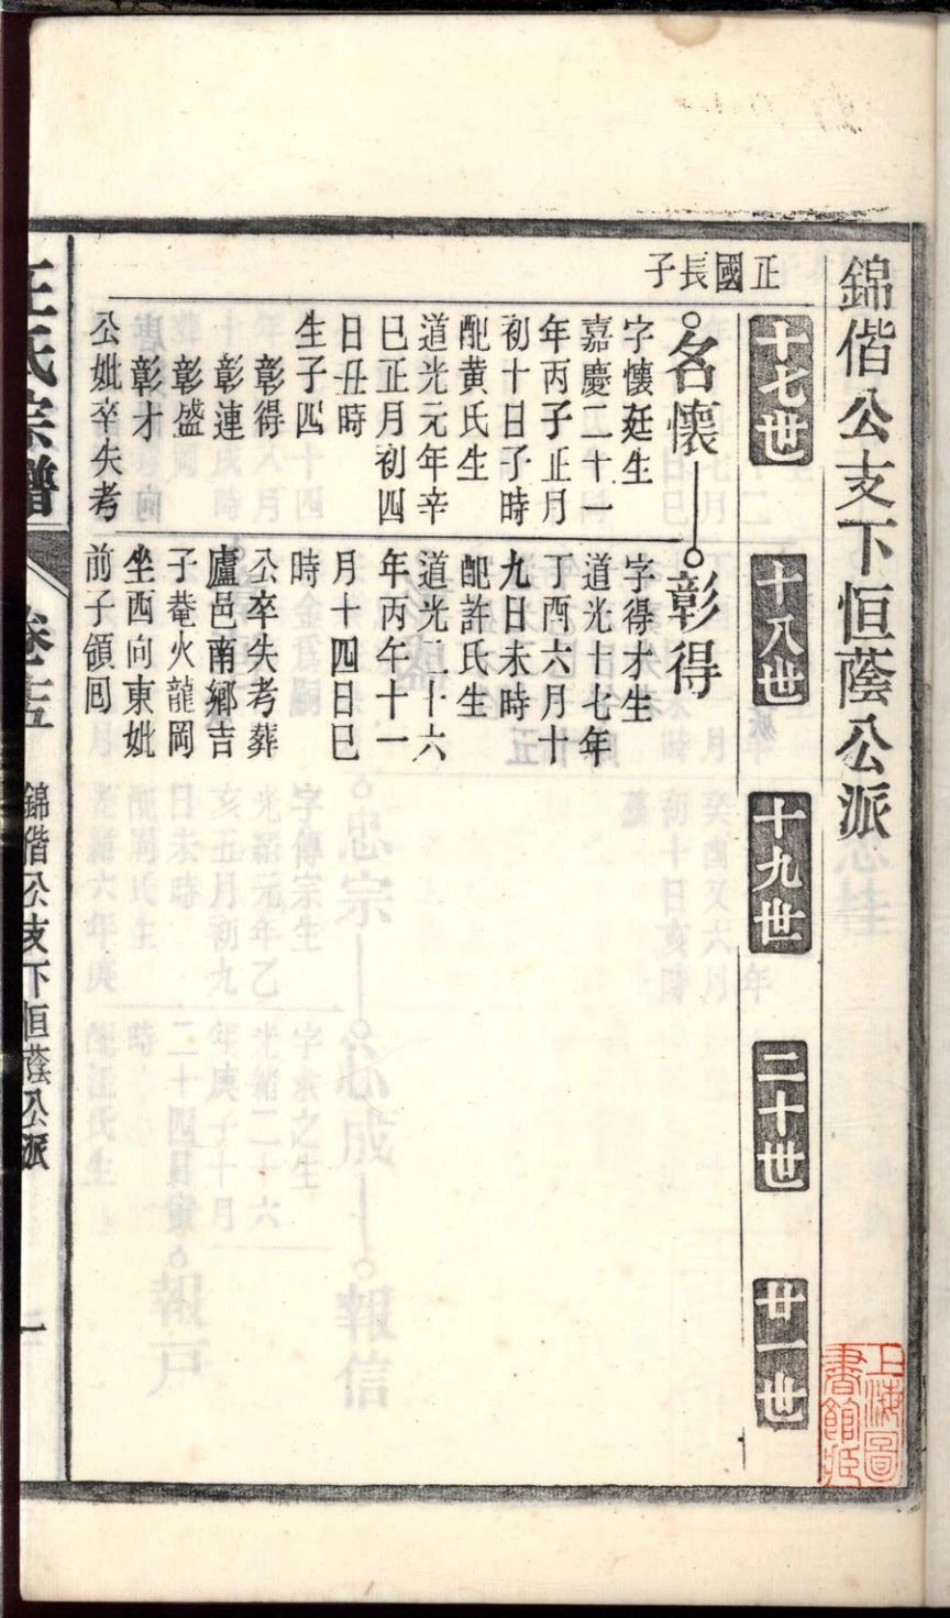 錦偕公支下恒蔭公派
十七世
十八世
十九世
二十世
廿一世
正國長子
名懷
字懷廷生
嘉慶二十一
年丙子正月
初十日子時
配黄氏生
道光元年辛
巳正月初四
日丑時
生子四
彰得
彰連
彰盛
彰才
公妣卒失考
彰得
字得才生
道光十七年
丁酉六月十
九日未時
配許氏生
道光二十六
年丙午十一
月十四日巳
時
公卒失考葬
廬邑南鄉吉
子菴火龍岡
坐西向東妣
前子領回
氏宗譜
錦偕公支下恒蔭公派
一
上海圖
書館